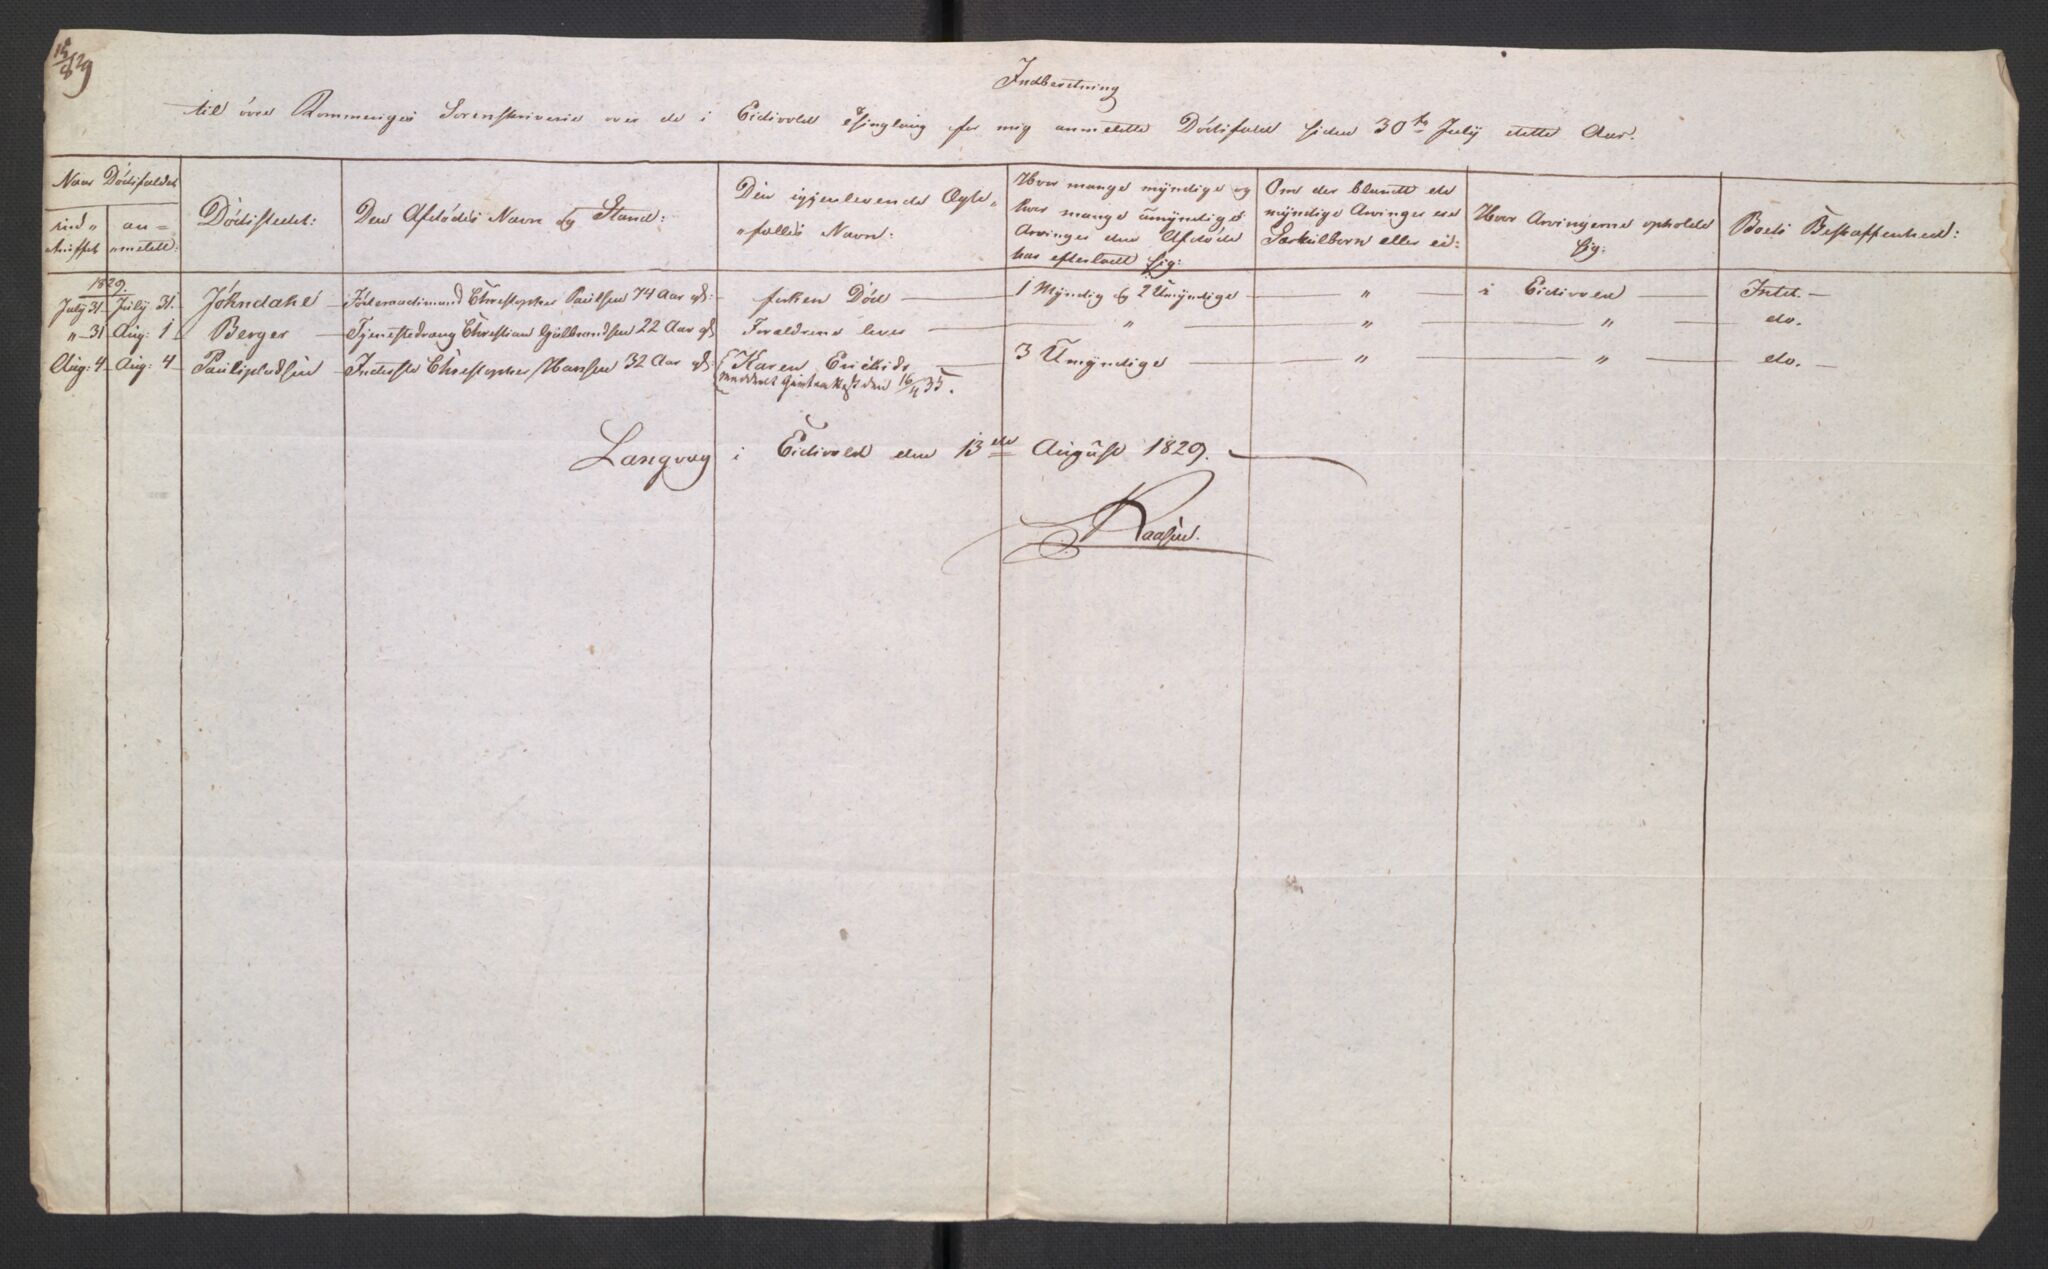 15/8 29
Indberetning
til övre Rommeriges Sorenskriverie over de i Eidsvold Thinglaug for mig anmeldte Dödsfald siden 30te July dette Aar.
Naar Dödsfaldet
ind- an-
truffet meldt:
Dödsstedet:
Den Afdödes Navn og Stand:
Den igjenlevende Ægte-
fælles Navn:
Hvor mange myndige og
hvor mange umyndige
Arvinger den Afdöde
har efterladt sig:
Om der blandt de
myndige Arvinger ere
Særkulbörn eller ei:
Hvor Arvingerne opholde
sig:
Boets Beskaffenhed:
1829.
July 31. July 31. Johndahl Föderaadsmand Christopher Paulsen 74 Aar gl: forhen Död 1 Myndig og 2 Umyndige " i Eidsvold Intet.
" 31 Aug: 1 Berger Tjenestedreng Christian Gulbrandsen 22 Aar gl Foraldrene lever " " " do.
Aug: 4 Aug: 4 Inderste Christopher Hansen 32 Aar gl: Karen Erichsdr 3 Umyndige " " do.
meddelt 16/11 35.
Langvag i Eidsvold den 13de August 1829.
Raasen.